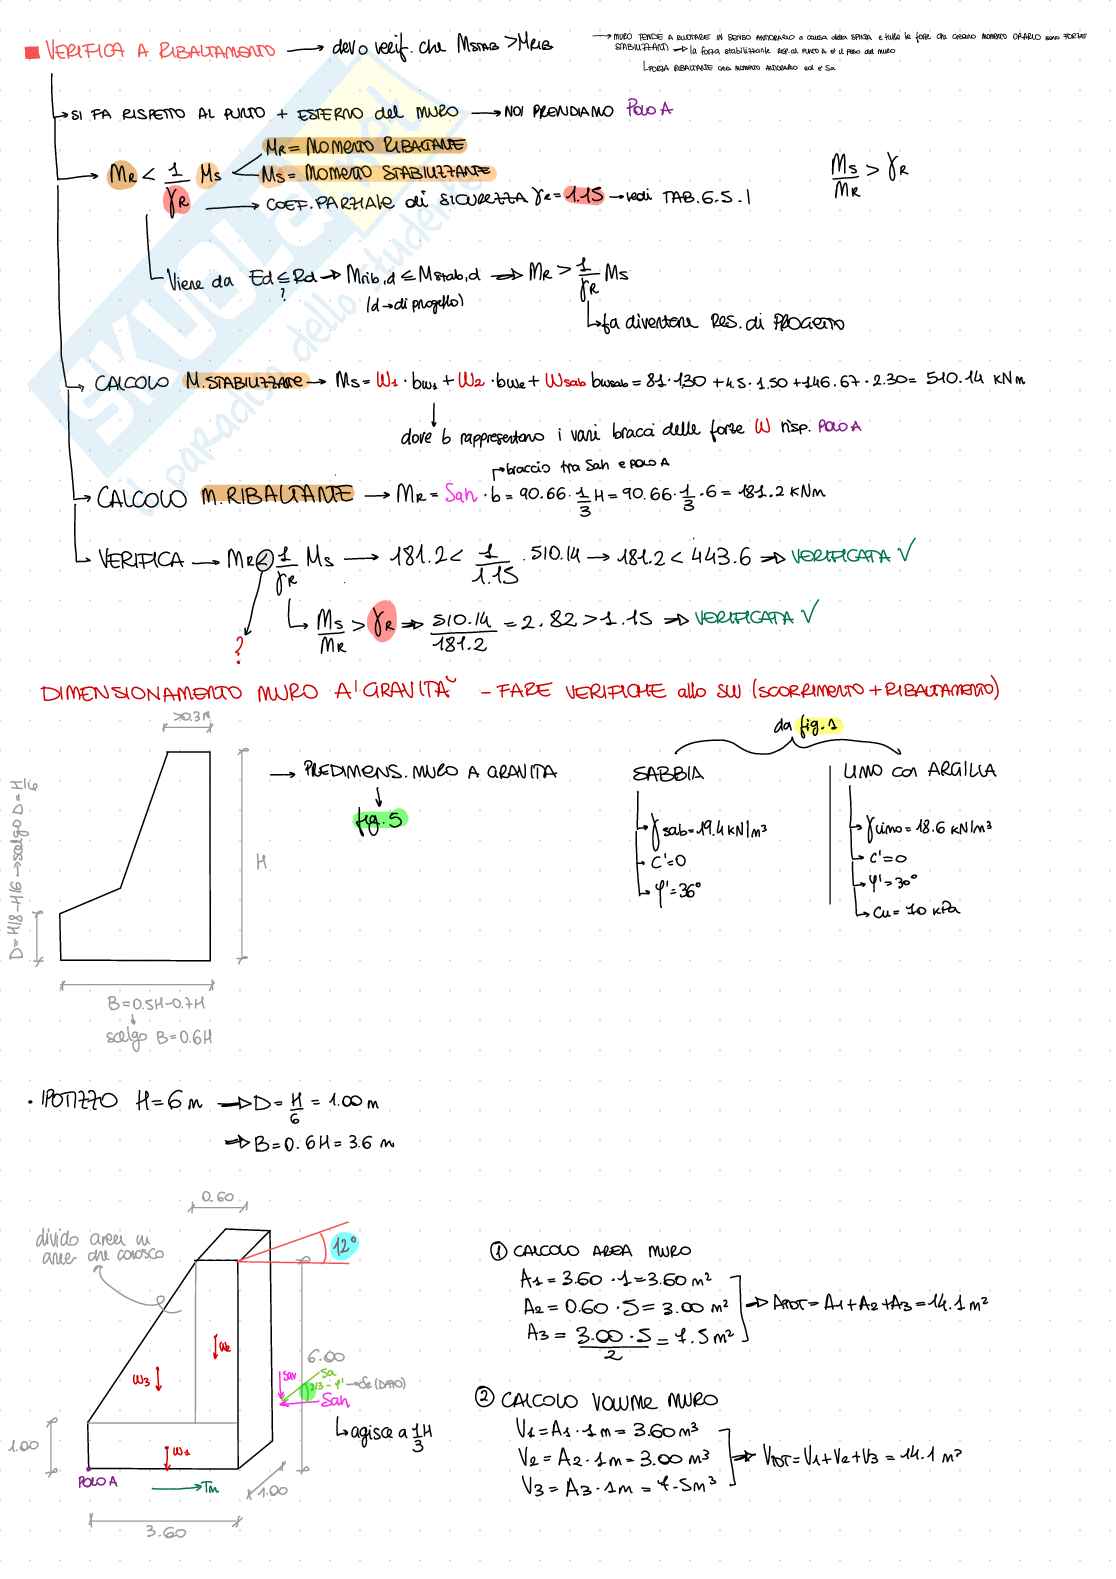 VERIFICA A RIBALTAMENTO → devo verif. che MSTAB > MRIB
→ MURO TENDE A RUOTARE IN SENSO ANTIORARIO a causa della SPINTA e tutte le forze che creano MOMENTO ORARIO sono FORZE
STABILIZZANTI → la forza stabilizzante risp. al PUNTO A è il peso del muro
↳ FORZA RIBALTANTE crea MOMENTO ANTIORARIO ed è Sa
→ SI FA RISPETTO AL PUNTO + ESTERNO del MURO → NOI PRENDIAMO POLO A
MR = MOMENTO RIBALTANTE
→ MR < 1/γR MS
MS = MOMENTO STABILIZZANTE
MS/MR > γR
→ COEF. PARZIALE di SICUREZZA γR = 1.15 → vedi TAB. 6.5.I
Viene da Ed ≤ Rd → Mrib,d ≤ Mstab,d ⇒ MR > 1/γR MS
?
(d → di progetto)
↳ fa diventare RES. di PROGETTO
→ CALCOLO M. STABILIZZANTE → MS = W1 · bw1 + W2 · bw2 + Wsab bwsab = 81 · 1.30 + 45 · 1.50 + 146.67 · 2.30 = 510.14 kNm
dove b rappresentano i vari bracci delle forze W risp. POLO A
→ braccio tra Sah e POLO A
→ CALCOLO M. RIBALTANTE → MR = Sah · b = 90.66 · 1/3 H = 90.66 · 1/3 · 6 = 181.2 kNm
→ VERIFICA → MR < 1/γR MS → 181.2 < 1/1.15 · 510.14 → 181.2 < 443.6 ⇒ VERIFICATA √
↳ MS/MR > γR ⇒ 510.14/181.2 = 2.82 > 1.15 ⇒ VERIFICATA √
?
DIMENSIONAMENTO MURO A' GRAVITA' - FARE VERIFICHE allo SLU (SCORRIMENTO + RIBALTAMENTO)
>0.3 M
da fig. 1
→ PREDIMENS. MURO A GRAVITA
fig. 5
SABBIA
γsab = 19.4 kN/m³
C' = 0
φ' = 36°
LIMO con ARGILLA
γLIMO = 18.6 kN/m³
C' = 0
φ' = 30°
Cu = 10 kPa
H
D = H/8 - H/6 → scelgo D = H/6
B = 0.5H - 0.7H
scelgo B = 0.6H
• IPOTIZZO H = 6 m ⇒ D = H/6 = 1.00 m
⇒ B = 0.6H = 3.6 m
0.60
divido aree in
aree che conosco
12°
W2
W3
6.00
Sav
Sa
2/3 · φ' → δ (DATO)
Sah
↳ agisce a 1/3 H
1.00
W1
POLO A
Tm
1.00
3.60
① CALCOLO AREA MURO
A1 = 3.60 · 1 = 3.60 m²
A2 = 0.60 · 5 = 3.00 m² ⇒ ATOT = A1 + A2 + A3 = 14.1 m²
A3 = 3.00 · 5/2 = 7.5 m²
② CALCOLO VOLUME MURO
V1 = A1 · 1 m = 3.60 m³
V2 = A2 · 1m = 3.00 m³ ⇒ VTOT = V1 + V2 + V3 = 14.1 m³
V3 = A3 · 1m = 7.5 m³
SKUOLA
il paradiso dello studente